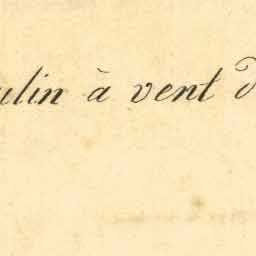 ulin à vent d